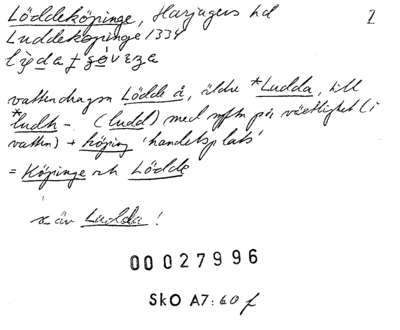 Löddeköpinge, Harjagers hd 2
Luddeköpinge 1334
vattendragsn Lödde å, äldre *Ludda, till
*ludh- (ludd) med syftn på växtlighet (i
vatten) + köping 'handelsplats'
= Köpinge och Lödde
är Ludda!
00027996
SkO A7: 60 f